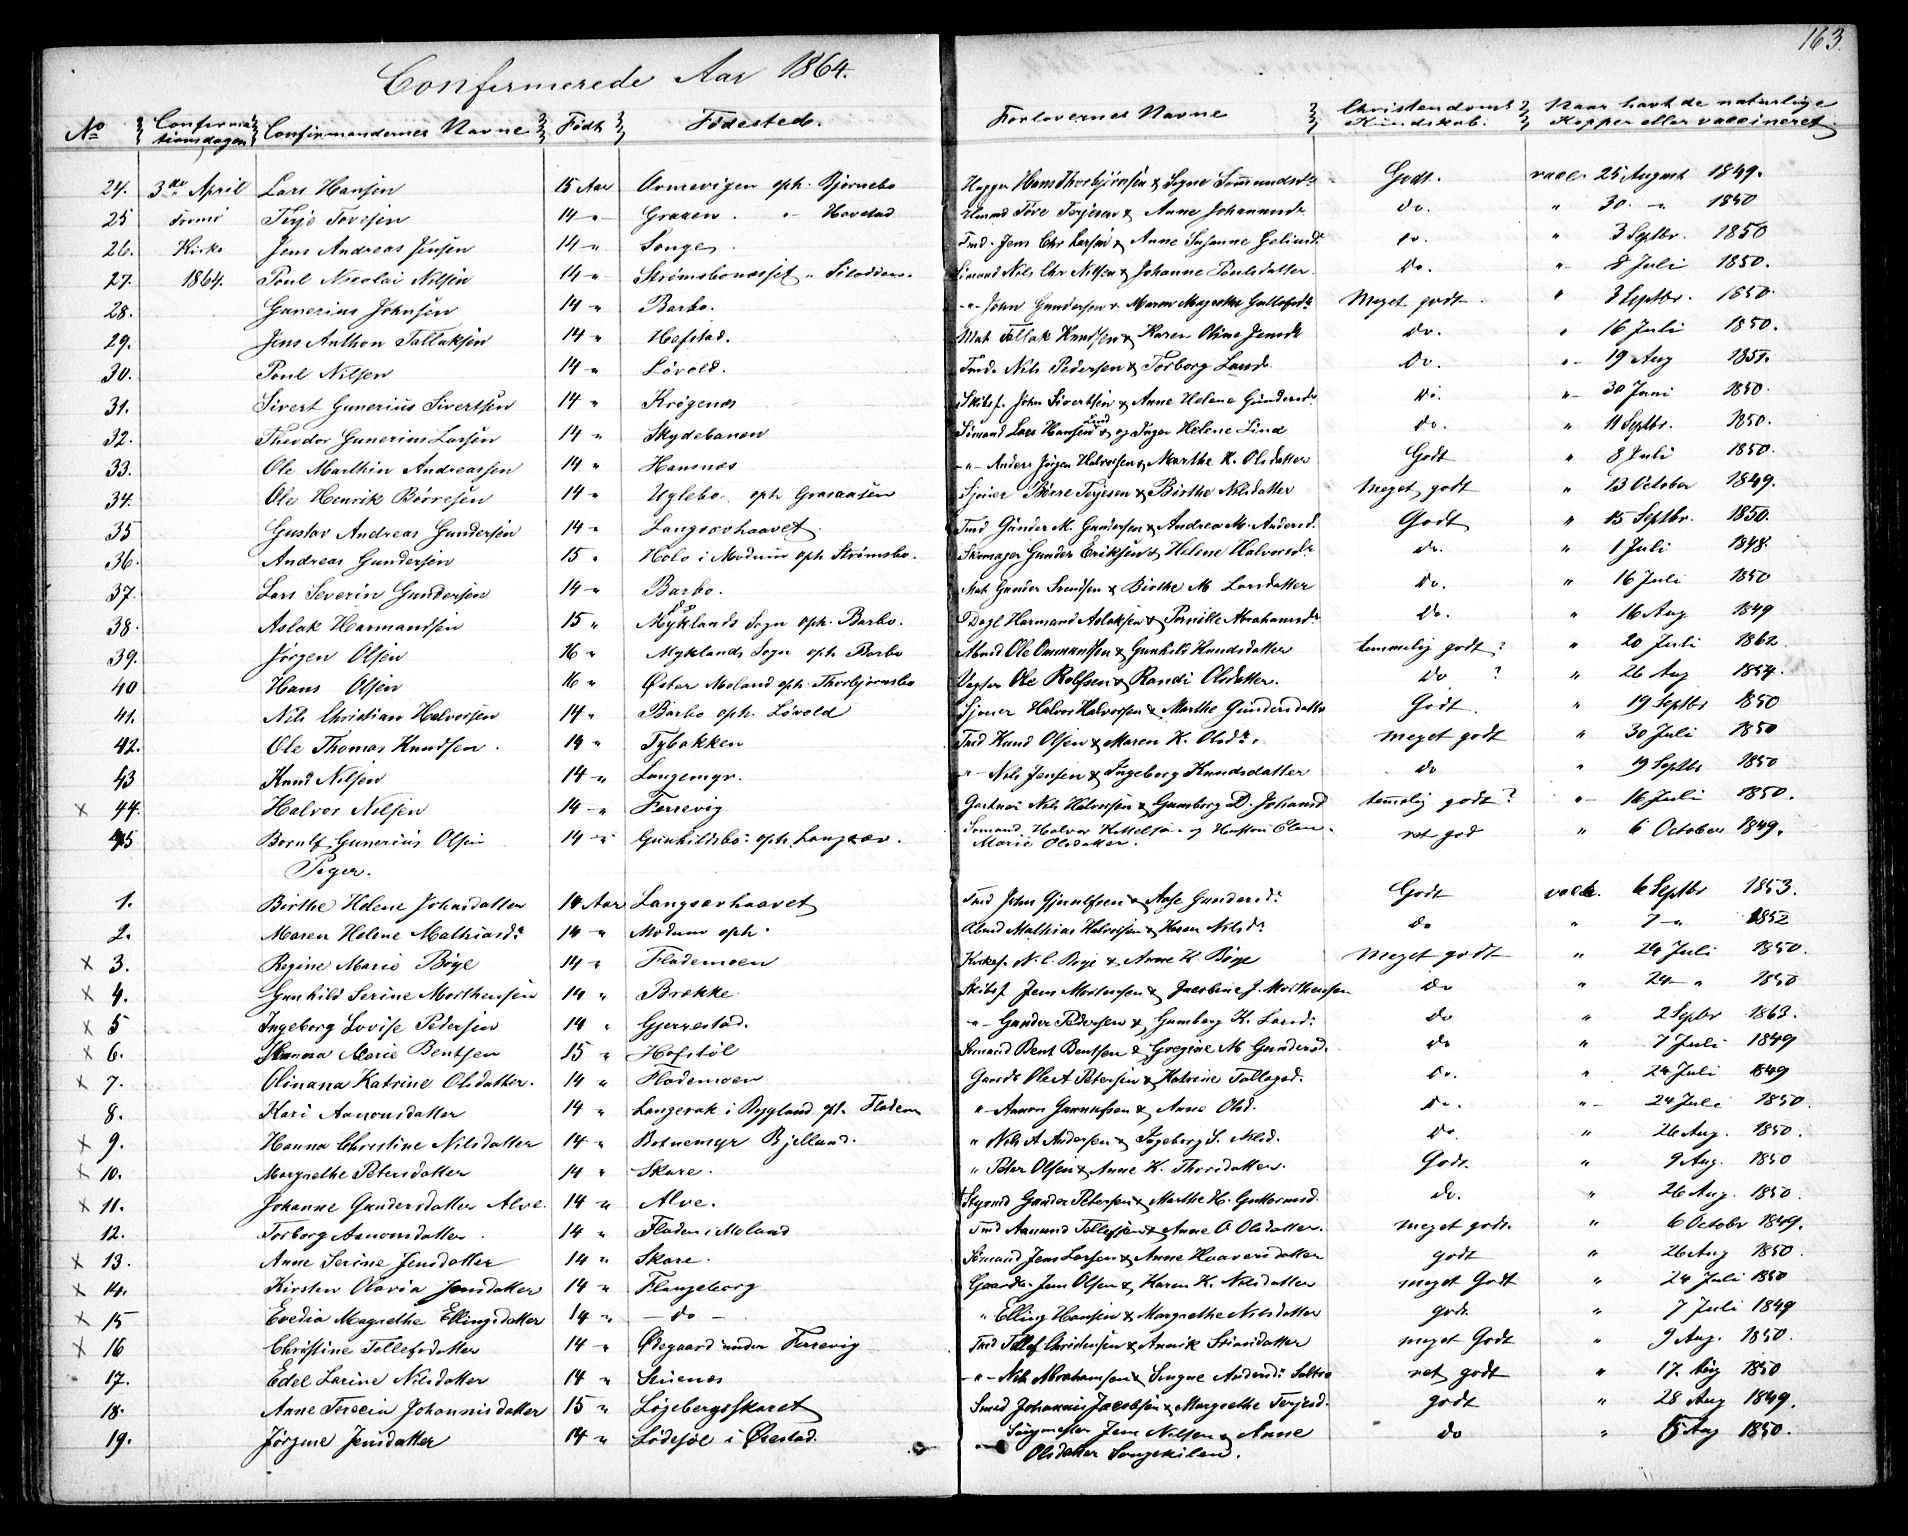 163.
Confirmerede Aar 1864.
No Confirmationsdagen Confirmandernes Navne Födt Födested. Forlovernes Navne Christendoms Kundskab. Naar havt de naturlige Kopper eller vaccineret
24. 3die April Lars Hansen 15 Aar Arnevigen oph. Bjørnebo Hans Thorbjörnsen & Signe Godt. vacc. 25 August 1849.
25 Tromö Terje Tovesen 14 " " Havstad Tove Terjesen & Anne Johannesd. do. " 30. " 1850
26. Kirke Jens Andreas Jensen 14 " Songe Tmd. Jens Chr Larsen & Anne Susanne do. " 3 Septbr. 1850
27. 1864. Poul Nicolai Nilsen 14 " Nils Chr Nilsen & Johanne Poulsdatter do. " 8 Juli 1850.
28. Gunerius Johnsen 14 " Barbo. " John Gundersen & Maren Magrethe Meget godt. " 3 Septbr. 1850.
29. Jens Anthon Tallaksen 14 " Hafstad. Mat Tallak Knudsen & Karen Oline Jensd. do. " 16 Juli 1850.
30. Poul Nilsen 14 " Lövold. Tmd. Nils Pedersen & Torborg Larsd. do. " 19 Aug 1851.
31. Sivert Gunerius Sivertsen 14 " Krögenes Skibsf. John Sivertsen & Anne Helene Gundersd. do. " 30 Juni 1850.
32. Theodor Gunerius Larsen 14 " Skydebanen Sömand Lars Hansen Lind & og Inger Helene Lind do. " 11 Septbr. 1850.
33. Ole Marthin Andreassen 14 " Hansnæs " Anders Jörgen Halvorsen & Marthe K. Olsdatter Godt " 8 Juli 1850.
34. Ole Henrik Börresen 14 " Uglebo oph Graaaasen Börre Terjesen & Birthe Nilsdatter Meget godt " 13 October 1849.
35 Gustav Andreas Gundersen 14 " Langsævhaavet. Tmd Gunder M. Gundersen & Andrea M. Andersd. Godt " 15 Septbr. 1850.
36. Andreas Gundersen 15 " Holo i Modum oph Strömsbo. Skomager Gunder Eriksen & Helene Halvorsd. do. " 1 Juli 1848.
37. Lars Severin Gundersen 14 " Barbo. Mat Gunder Svendsen & Birthe M Larsdatter do. " 16 Juli 1850
38. Aslak Harmandsen 15 " Myklands Sogn oph. Barbo. Harmand Aslaksen & Pernille Abrahamsd. do. " 16 Aug 1849
39. Jörgen Olsen 16 " Myklands Sogn oph Barbo Ole Ommundsen & Gunhild Knudsdatter temmelig godt? " 20 Juli 1862.
40 Hans Olsen 16 " Öster Moland oph. Thorbjörnsbo Vægter Ole Rolfsen & Randi Olsdatter. do ? " 26 Aug 1854.
41. Nils Christian Halvorsen 14 " Barbo oph. Lövold Halvor Halvorsen & Marthe Gundersdatter Godt. " 19 Septbr 1850
42. Ole Thomas Knudsen. 14 " Tybakken Tmd Knud Olsen & Maren K. Olsdr. meget godt " 30 Juli 1850
43 Knud Nilsen 14 " Langemyr. " Nils Jensen & Ingeborg Knudsdatter do " 19 Septbr 1850
x 44. Halvor Nilsen 14 " Færrevig Nils Halvorsen & Gumborg D. temmelig godt? " 16 Juli 1850.
45 Gunerius Olsen 14 " Gunhildsbo oph. Langsæv. Sömand Halvor Kittelsen og Hustru Elen Marie Olsdatter. ret god " 6 October 1849.
Piger.
1. Birthe Helene Johnsdatter 14 Aar Langsævhaavet Tmd John & Aase Gundersd. Godt vacc. 6 Septbr 1853.
2. Maren Helene Mathiasdr 14 " Modum oph. Mathias Halvorsen & Karen Nilsdr. do " 7 " 1852
x 3. Regine Marie Böye 14 " Flademoen N. C. Böye & Anne K. Böye Meget godt " 24 Juli 1850.
x 4. Gunhild Serine Morthensen 14 " Brække. Skibsf Jens Mortensen & Jacobine J. Morthensen do " 24 " 1850
x 5 Ingeborg Lovise Pedersen 14 " Gjerrestad. " Gunder Pedersen & Gumborg K. Larsd. do " 2 Septbr 1863.
x 6. Hanna Marie Bentsen 15 " Hofstöl Sömand Bent Bentsen & Gregine M Gundersd. do " 7 Juli 1849
x 7. Olinana Katrine Olsdatter. 14 " Flademoen Gaardb Ole A Petersen & Katrine do. " 24 Juli 1849
8. Kari Aanonsdatter 14 " Langerak i Bygland op. Fladem " Aanon Gunnufsen & Anne Olsd. do. " 24 Juli 1850.
x 9. Hanna Christine Nilsdatter 14 " Botnemyr Bjelland. " Nils A Andersen & Ingeborg S. Nilsd. do. " 26 Aug. 1850.
x 10. Margrethe Petersdatter 14 " Skare. " Peter Olsen & Anne K. Thorsdatter. Godt. " 9 Aug. 1850
x 11. Johanne Gundersdatter Alve. 14 " Alve. Gunder Petersen & Marthe H. Guttormsd. do. " 26 Aug. 1850.
12. Torborg Aanonsdatter. 14 " Fladen i Moland Tmd Aanund Tellefsen & Anne O Olsdatter. meget godt. " 6 Octobr 1849.
x 13. Anne Serine Jensdatter 14 " Skare. Sömand Jens Larsen & Anne Haaversdatter godt " 26 Aug 1850.
x 14. Kirsten Olavia Jensdatter 14 " Flangeborg Gaardb. Jens Olsen & Karen K. Nilsdatter meget Godt " 24 Juli 1850
x 15 Evedia Magrethe Ellingsdatter 14 " — do — " Elling Hansen & Margrethe Nilsdatter godt. " 7 Juli 1849
x 16 Christine Tellefsdatter 14 " Ödegaard under Færrevig Tmd Tellef Christensen & Annik meget Godt " 9 Aug. 1850.
17. Edel Larine Nilsdatter 14 " " Nils Abrahamsen & Signe Andersd. Saltrö ret godt " 17. Aug 1850
18. Anne Johannisdatter 15 " Löjebergsskaret Smed Johannis Jacobsen & Margrethe Terjesd. godt " 28 Aug 1849.
19. Jörgine Jensdatter 14 " i Öiestad. Jens Nilsen & Anne Olsdatter Songekilen. do " 5 Aug 1850.